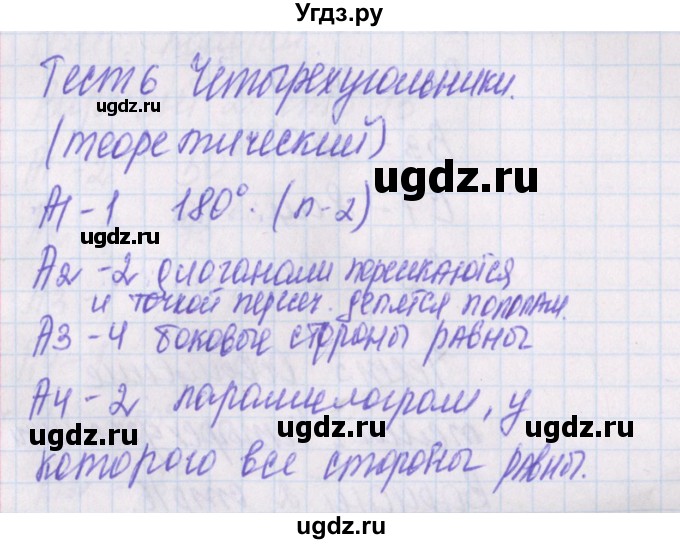 Угдз.ру
Тест 6 Четырехугольники.
ugdz.ru
(теоретический)
ugdz.ru
A1 - 1 180°. (n-2)
ugdz.ru
ugdz.ru
A2 - 2 диагонали пересекаются
и точкой пересеч. делятся пополам.
ugdz.ru
A3 - 4 боковые стороны равны
ugdz.ru
A4 - 2 параллелограм, у
ugdz.ru
ugdz.ru
которого все стороны равны.
ugdz.ru
ugdz.ru